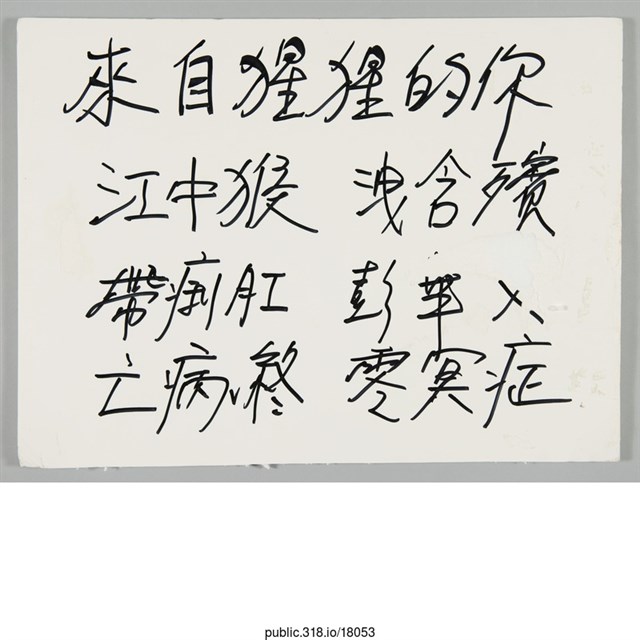 來自猩猩的你
江中猴 洩含殯
帶痢肛 彭華
亡病終 零冥症
public.318.io/18053